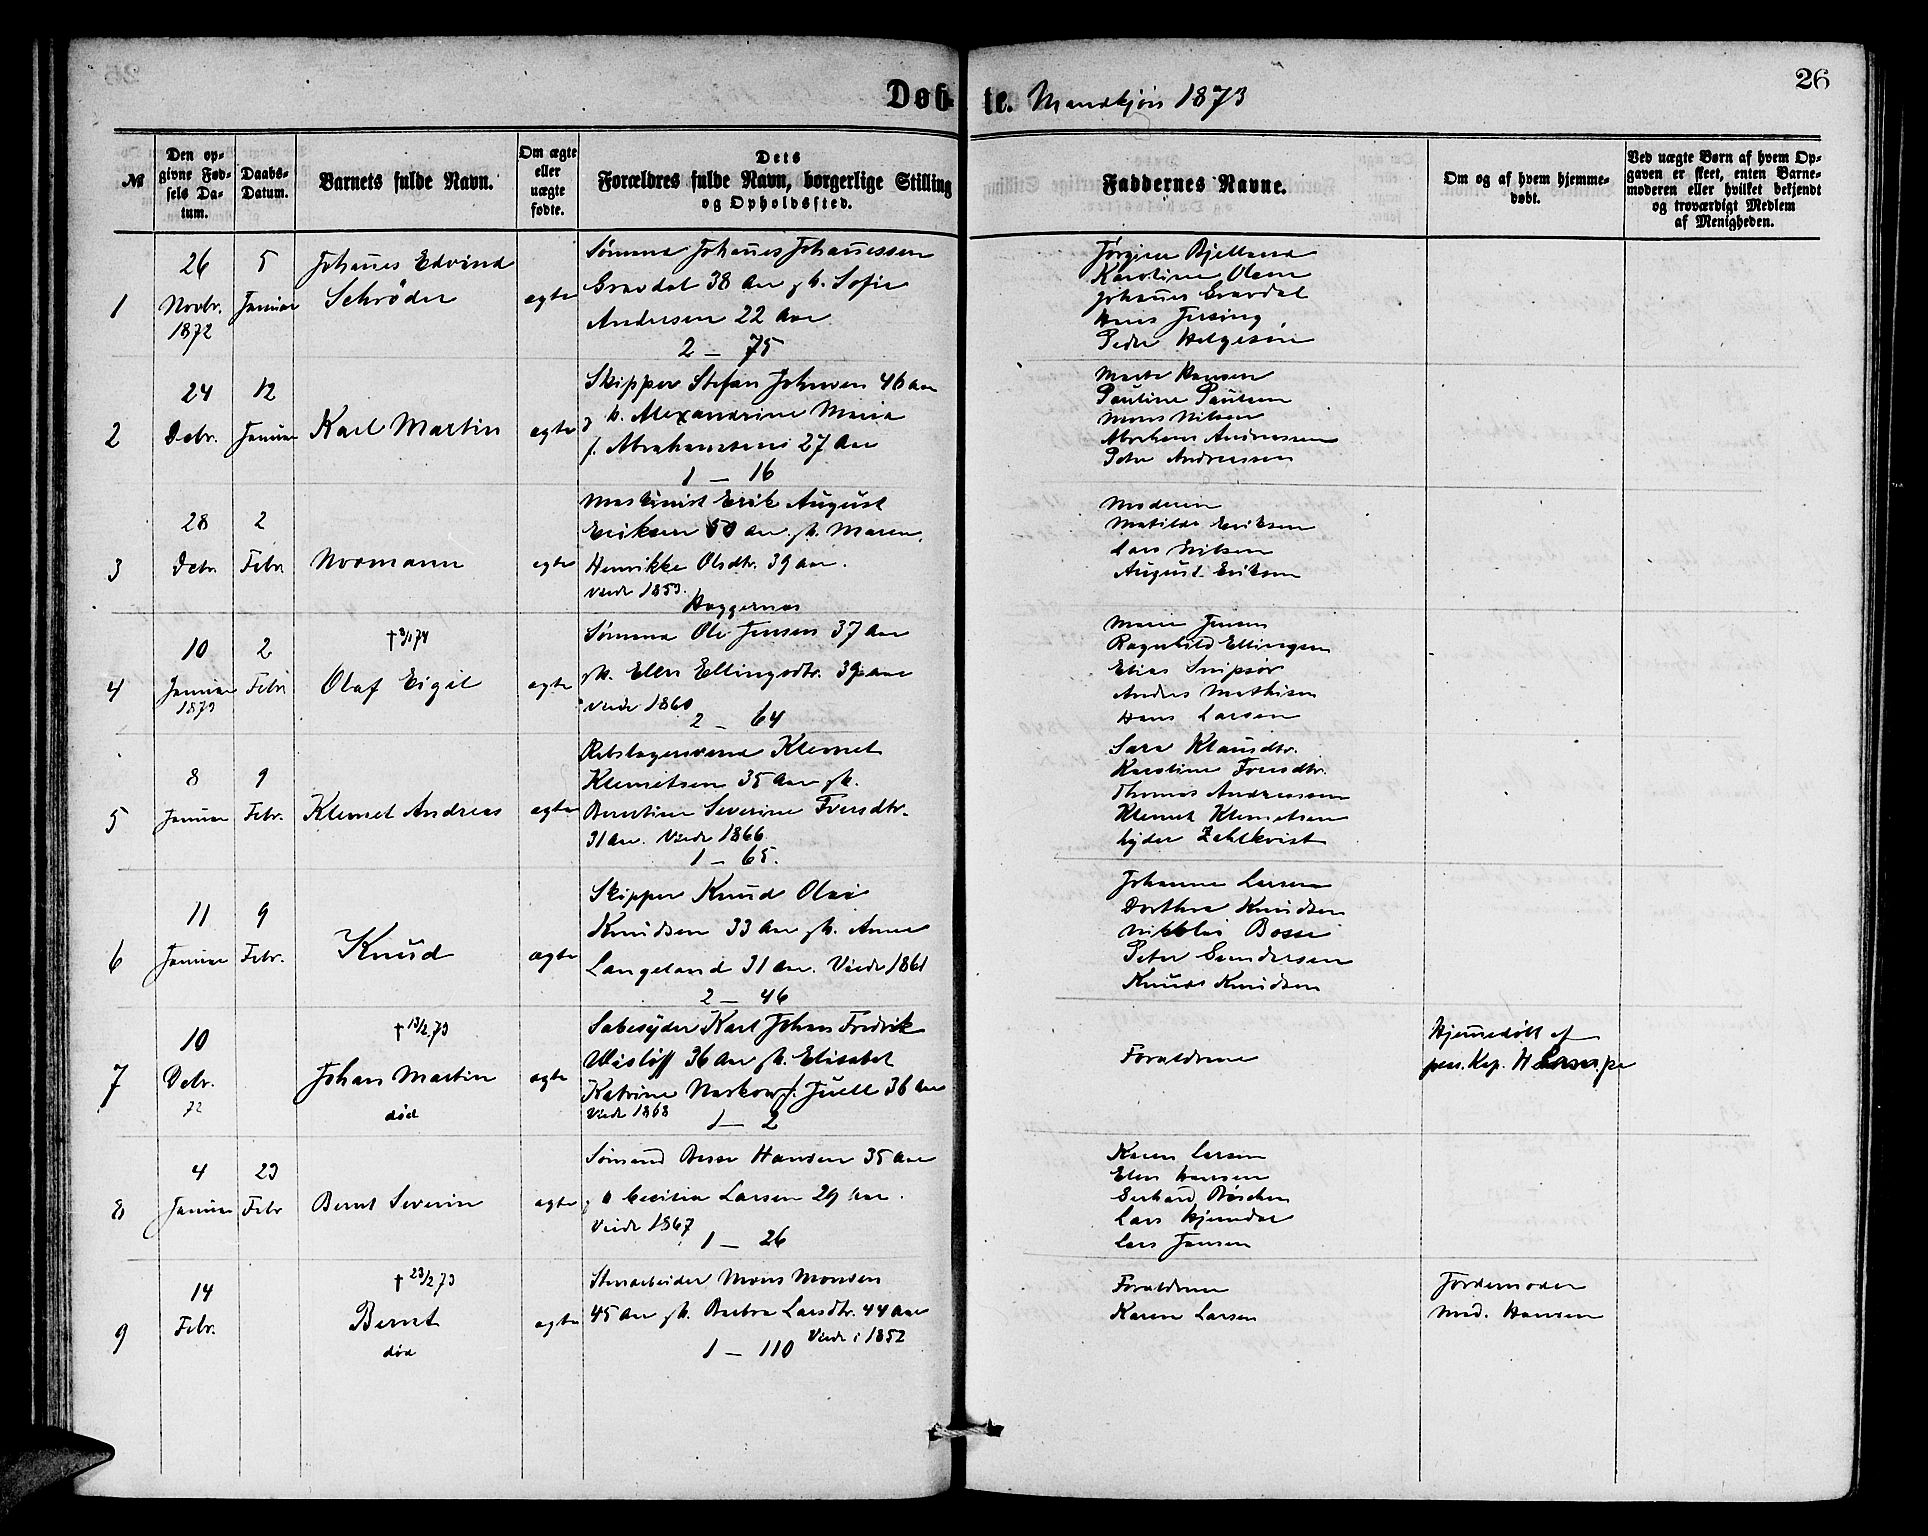 26
Døbte. Mandkjøn 1873
№
Den opgivne Fødsels Datum.
Daabs-Datum.
Barnets fulde Navn.
Om ægte eller uægte fødte.
Dets Forældres fulde Navn, borgerlige Stilling og Opholdssted.
Faddernes Navne.
Om og af hvem hjemmedøbt.
Ved uægte Børn af hvem Opgaven er skeet, enten Barnemoderen eller hvilket bekjendt og troværdigt Medlem af Menigheden.
1
26 Novbr. 1872
5 Januar
Johannes Edvind
Schrøder
ægte
Sømand Johannes Johannessen
Gravdal 38 Aar g h. Sofie
Andersen 22 Aar
2 — 75
Jørgine Bjelland
Karoline Olsen
Johannes Gravdal
Peder Helgesen
2
24 Debr.
12 Januar
Karl Martin
ægte
Skipper Stefan Johnsen 46 Aar
g h. Alexandrine Maria
f. Abrahamsens 27 Aar
1 — 16
Marte Hansen
Pauline Paulsen
Mons Nilsen
Abraham Andreassen
Peter Andreassen
3
28 Debr.
2 Febr.
Normann
ægte
Maskinist Erik August
Eriksen 50 Aar g h. Maren
Henrikke Olsdtr. 39 Aar.
Viede 1853.
Haggernæs
Moderen
Matilde Eriksen
Lars Nilsen
August Eriksen
4
10 Januar 1873
2 Febr.
† 3/1 74
Olaf Eigil
ægte
Sømand Ole Jensen 37 Aar
g h. Ellen Ellingsdtr. 39 Aar
Viede 1860
2 — 64
Marie Jensen
Ragnhild Ellingsen
Elias Snipsør
Andreas Mathisen
Hans Larsen
5
8 Januar
9 Febr.
Klemet Andreas
ægte
Rebslagersvend Klemet
Klemetsen 35 Aar g h.
Berntine Severine Iversdtr.
31 Aar. Viede 1866
1 — 65.
Sara Klausdtr.
Karoline Iversdtr.
Thomas Andreassen
Klemet Klemetsen
Lyder Zehlkvist
6
11 Januar
9 Febr.
Knud
ægte
Skipper Knud Olai
Knudsen 33 Aar g h. Anna
Langeland 31 Aar. Viede 1861
2 — 46
Johanne Larsen
Dorthea Knudsen
Nikolai Bosse
Peter Gundersen
Knud Knudsen
7
10 Debr. 72
† 13/2 73
Johan Martin
død
ægte
Sæbesyder Karl Johan Fredrik
Wisløff 36 Aar g h. Elisabet
Katrine f. Juell 36 Aar
Viede 1868
1 — 2
Forældrene
Hjemmedøbt af
pers. Kap.
8
4 Januar
23 Febr
Bernt Severin
ægte
Sømand Hansen 35 Aar
g h Cecilia Larsen 29 Aar.
Viede 1867
1 — 26
Karen Larsen
Elen Hansen
Gerhard Bøschen
Lars Hjemdal
Lars Jansen
9
14 Febr.
† 23/2 73
Bernt
død
ægte
Stenarbeider Mons Monsen
45 Aar g h. Barbra Larsdtr. 44 Aar
Viede i 1852
1 — 110
Forældrene
Karen Larsen
Jordemoder
Mad. Hansen